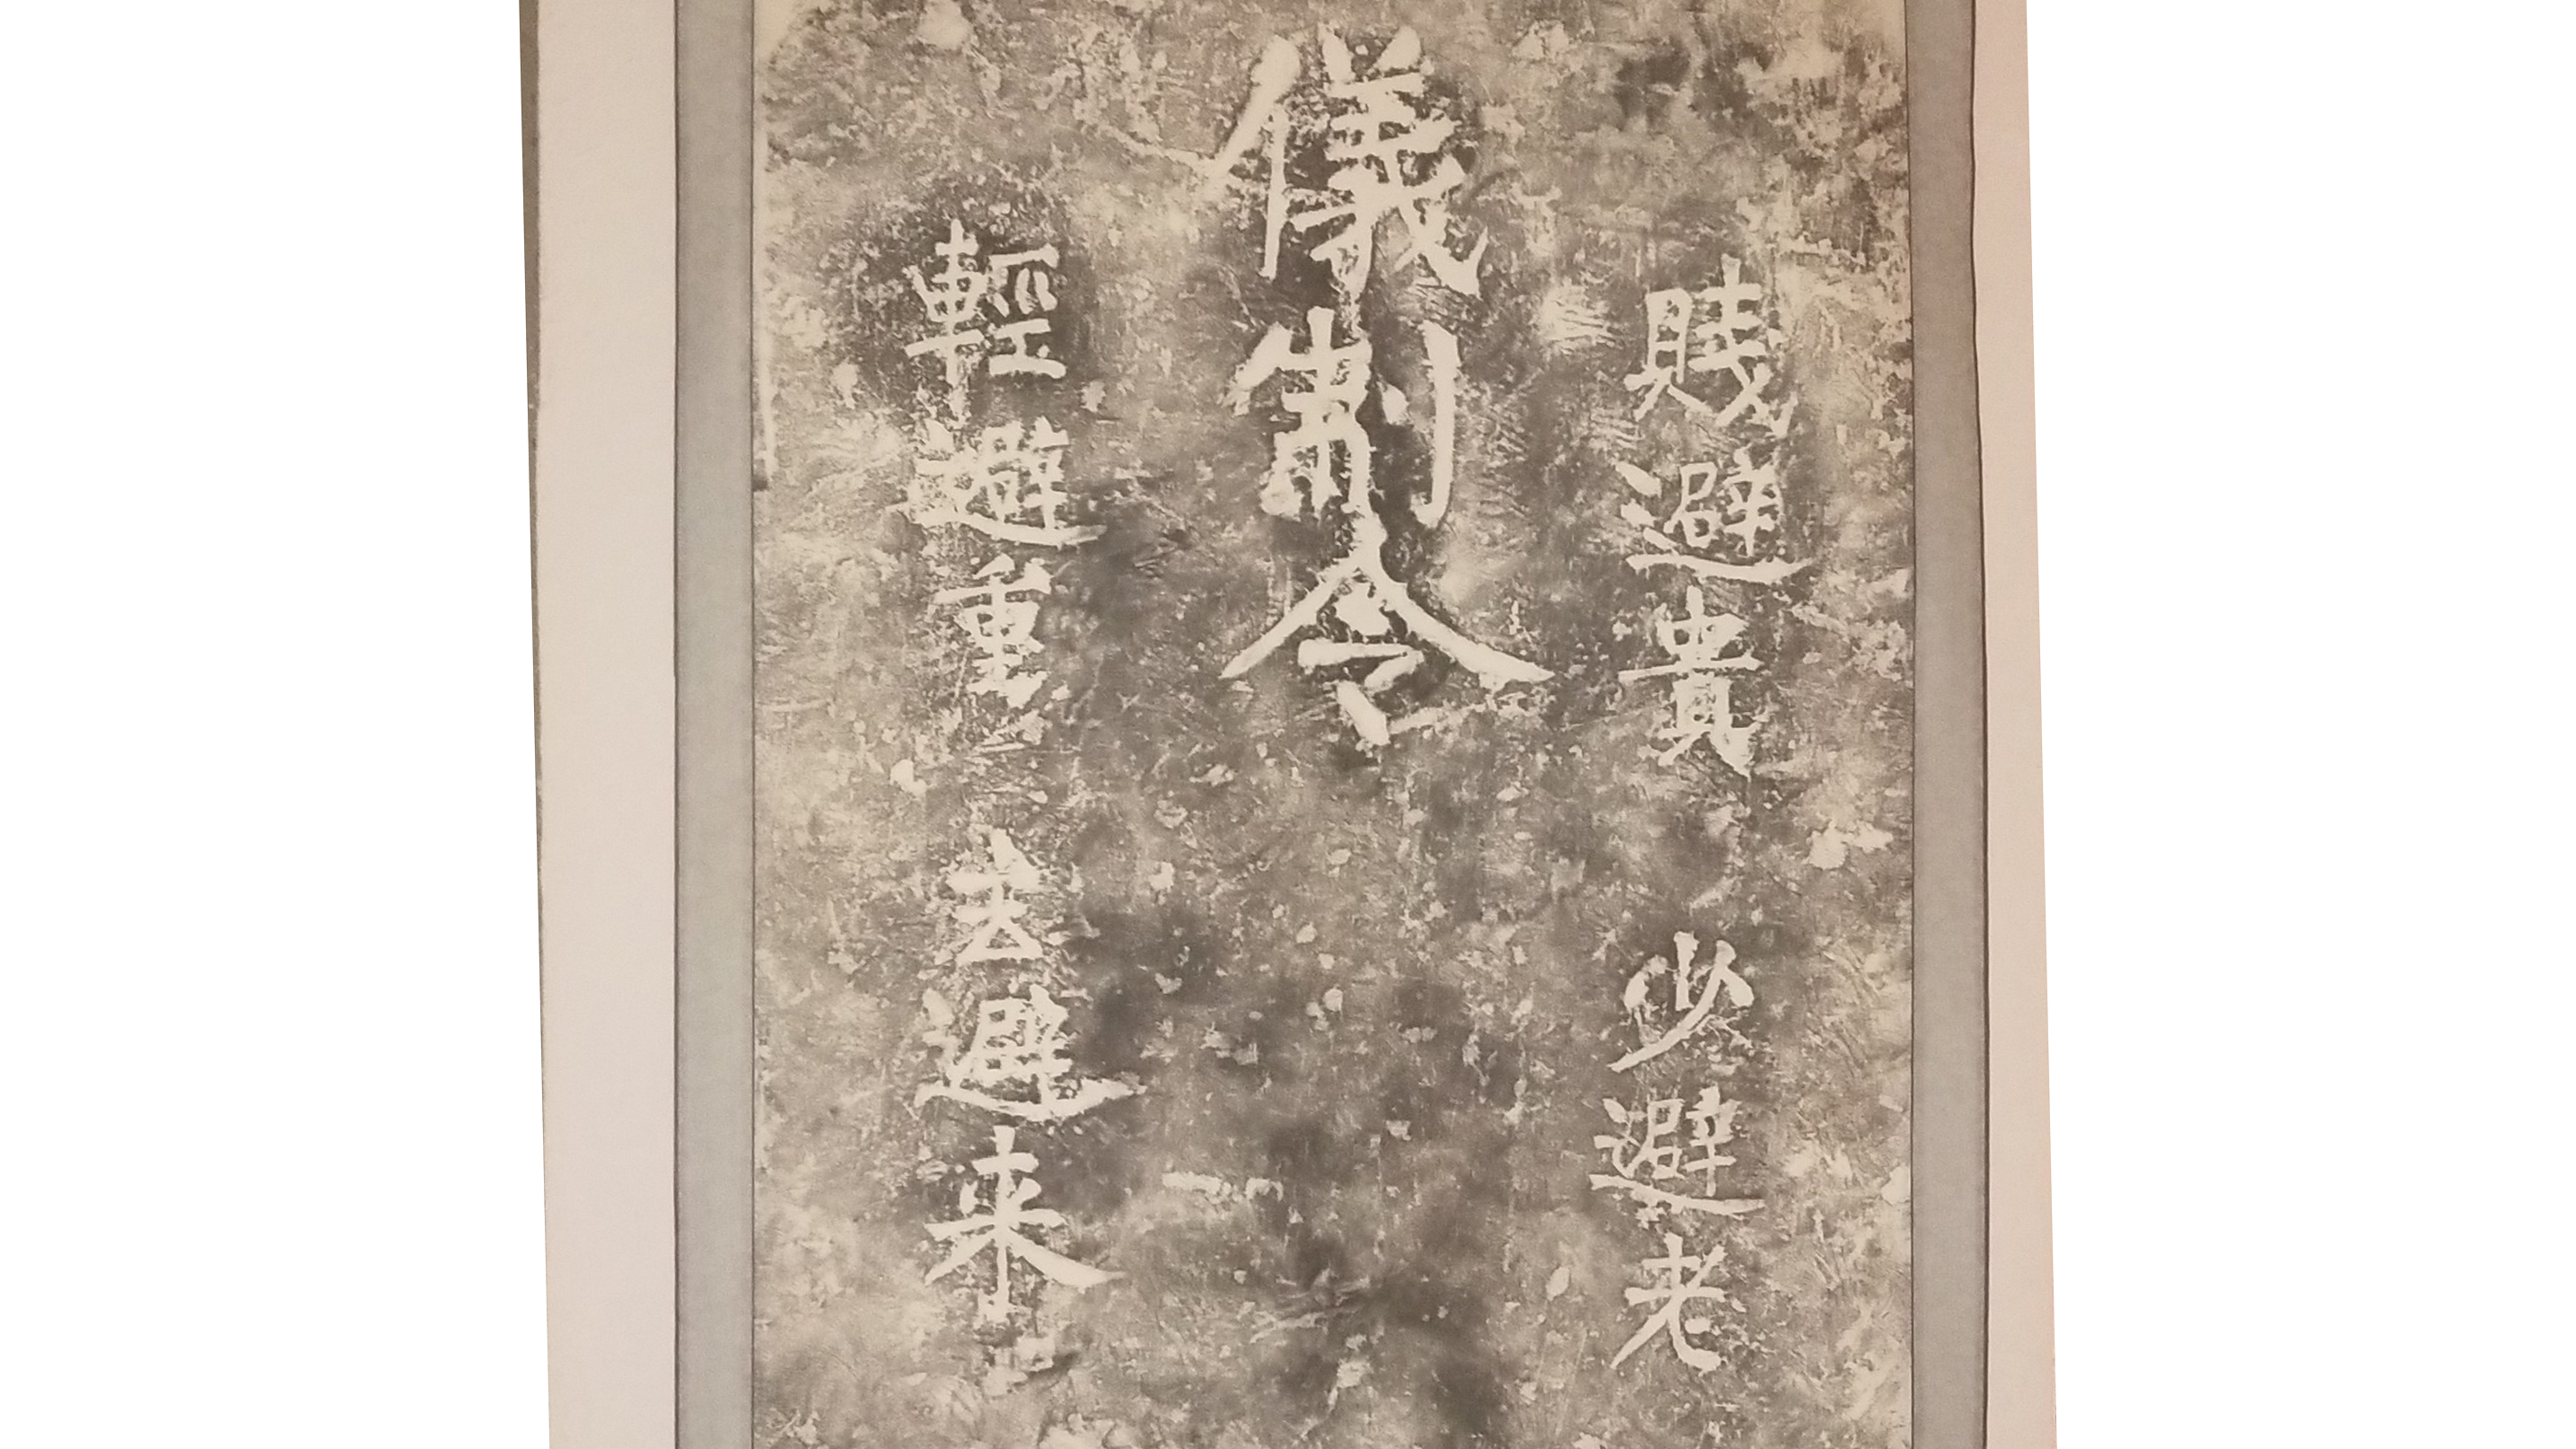 賎避貴 少避老
儀制令
輕避重 去避来